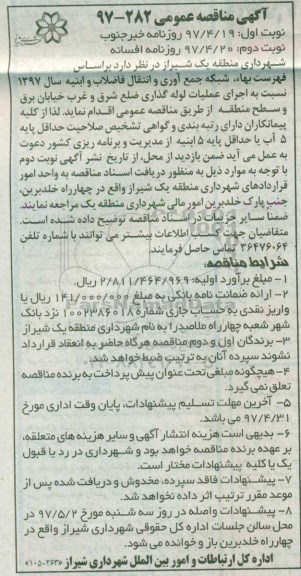 آگهی مناقصه عمومی ۲۸۲-۹۷
نوبت اول: ۹۷/۴/۱۹ روزنامه خبرجنوب
نوبت دوم: ۹۷/۴/۲۰ روزنامه افسانه
شهرداری منطقه یک شیراز در نظر دارد براساس
فهرست بهاء، شبکه جمع آوری و انتقال فاضلاب و ابنیه سال ۱۳۹۷
نسبت به اجرای عملیات لوله گذاری ضلع شرق و غرب خیابان برق
و سطح منطقه از طریق مناقصه عمومی اقدام نماید. لذا از کلیه
پیمانکاران دارای رتبه بندی و گواهی تشخیص صلاحیت حداقل پایه
۵ آب یا حداقل پایه ۵ ابنیه از مدیریت و برنامه ریزی کشور دعوت
به عمل می آید ضمن بازدید از محل، از تاریخ نشر آگهی نوبت دوم
با توجه به موارد ذیل به منظور دریافت اسناد مناقصه به واحد امور
قراردادهای شهرداری منطقه یک شیراز واقع در چهارراه خلدبرین،
جنب پارک خلدبرین امور مالی شهرداری منطقه یک مراجعه نمایند.
ضمنا سایر جزییات در اسناد مناقصه توضیح داده شده است.
متقاضیان جهت کسب اطلاعات بیشتر می توانند با شماره تلفن
۳۶۴۷۶۰۶۴ تماس حاصل فرمایند.
شرایط مناقصه:
۱- مبلغ برآورد اولیه: ۲/۸۱۱/۴۶۴/۹۶۹ ریال.
۲- ارائه ضمانت نامه بانکی به مبلغ ۱۴۱/۰۰۰/۰۰۰ ریال یا
واریز نقدی به حساب جاری شماره ۱۰۰۲۳۸۶۰۱۸ نزد بانک
شهر شعبه چهارراه ملاصدرا به نام شهرداری منطقه یک شیراز
۳- برندگان اول و دوم مناقصه هرگاه حاضر به انعقاد قرارداد
نشوند سپرده آنان به ترتیب ضبط خواهد شد.
۴- هیچگونه مبلغی تحت عنوان پیش پرداخت به برنده مناقصه
تعلق نمی گیرد.
۵- آخرین مهلت تسلیم پیشنهادات، پایان وقت اداری مورخ
۹۷/۴/۳۱ می باشد.
۶- بدیهی است هزینه انتشار آگهی و سایر هزینه های متعلقه،
بر عهده برنده مناقصه خواهد بود و شهرداری در رد یا قبول
یک یا کلیه پیشنهادات مختار است.
۷- پیشنهادات فاقد سپرده، مخدوش و دریافت شده پس از
موعد مقرر ترتیب اثر داده نخواهد شد.
۸- پیشنهادات واصله در روز سه شنبه مورخ ۹۷/۵/۲ در
محل سالن جلسات اداره کل حقوقی شهرداری شیراز واقع در
چهارراه خلدبرین باز و خوانده می شود.
اداره کل ارتباطات و امور بین الملل شهرداری شیراز